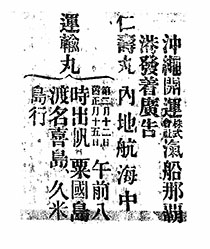 沖繩開運株式会社汽船那覇
港發着廣告
仁壽丸 内地航海中
運輸丸
第二月十二日
舊正月十五日
午前八
時出帆粟國島
渡名喜島、久米
島行